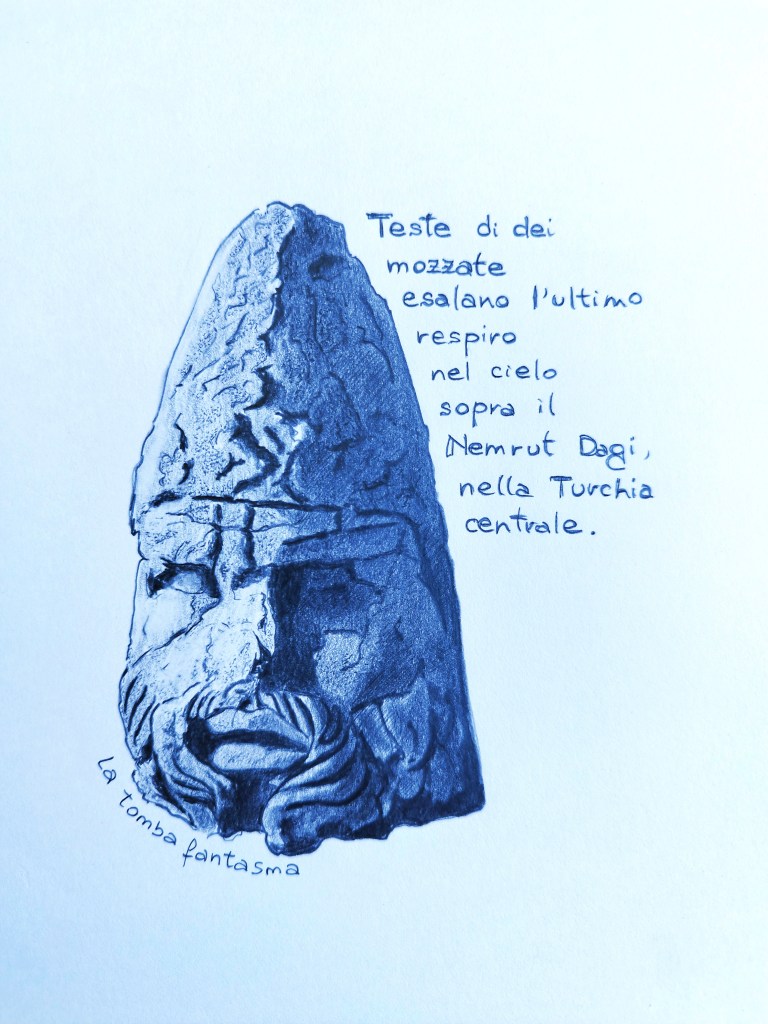 Teste di dei
mozzate
esalano l'ultimo
respiro
nel cielo
sopra il
Nemrut Dagi,
nella Turchia
centrale.
La tomba fantasma